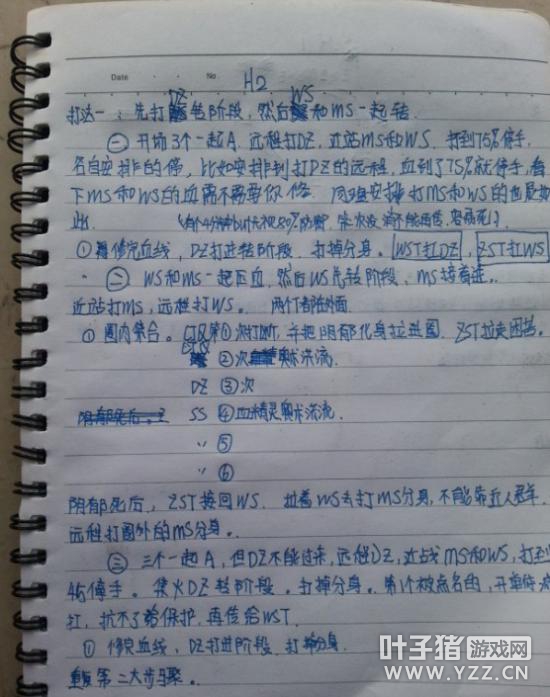 Date No H2
打法一：先打DZ转阶段，然后WS和MS一起转
㊀ 开场3个一起A，远程打DZ，近战MS和WS，打到75%停手，
各自安排的停，比如安排到打DZ的远程，血到了75%就停手，看
下MS和WS的血需不需要你修。同理安排打MS和WS的也是如
此。
①修完血线，DZ打进转阶段，打掉分身。WST扛DZ，ZST扛WS
㊁ WS和MS一起压血，然后WS先转阶段，MS接着进。
近战打MS，远程打WS。两个都在外面
①圈内集合。第①次打断，并把阴郁化身拉进圈，ZST拉
②次奥术洪流
DZ ③次
SS ④血精灵奥术洪流.
〃 ⑤
〃 ⑥
阴郁死后，ZST接回WS，拉着WS去打MS分身，不能靠近人群，
远程打圈外的MS分身。
㊂ 三个一起A，但DZ不能过来，远程DZ，近战MS和WS，打到
45停手。集火DZ转阶段，打掉分身。第1个被点名的，开单传
扛，抗不了给保护，再传给WST
①修完血线，DZ打进阶段，打掉分身
重复第二大步骤。
叶子猪游戏网
WWW.YZZ.CN